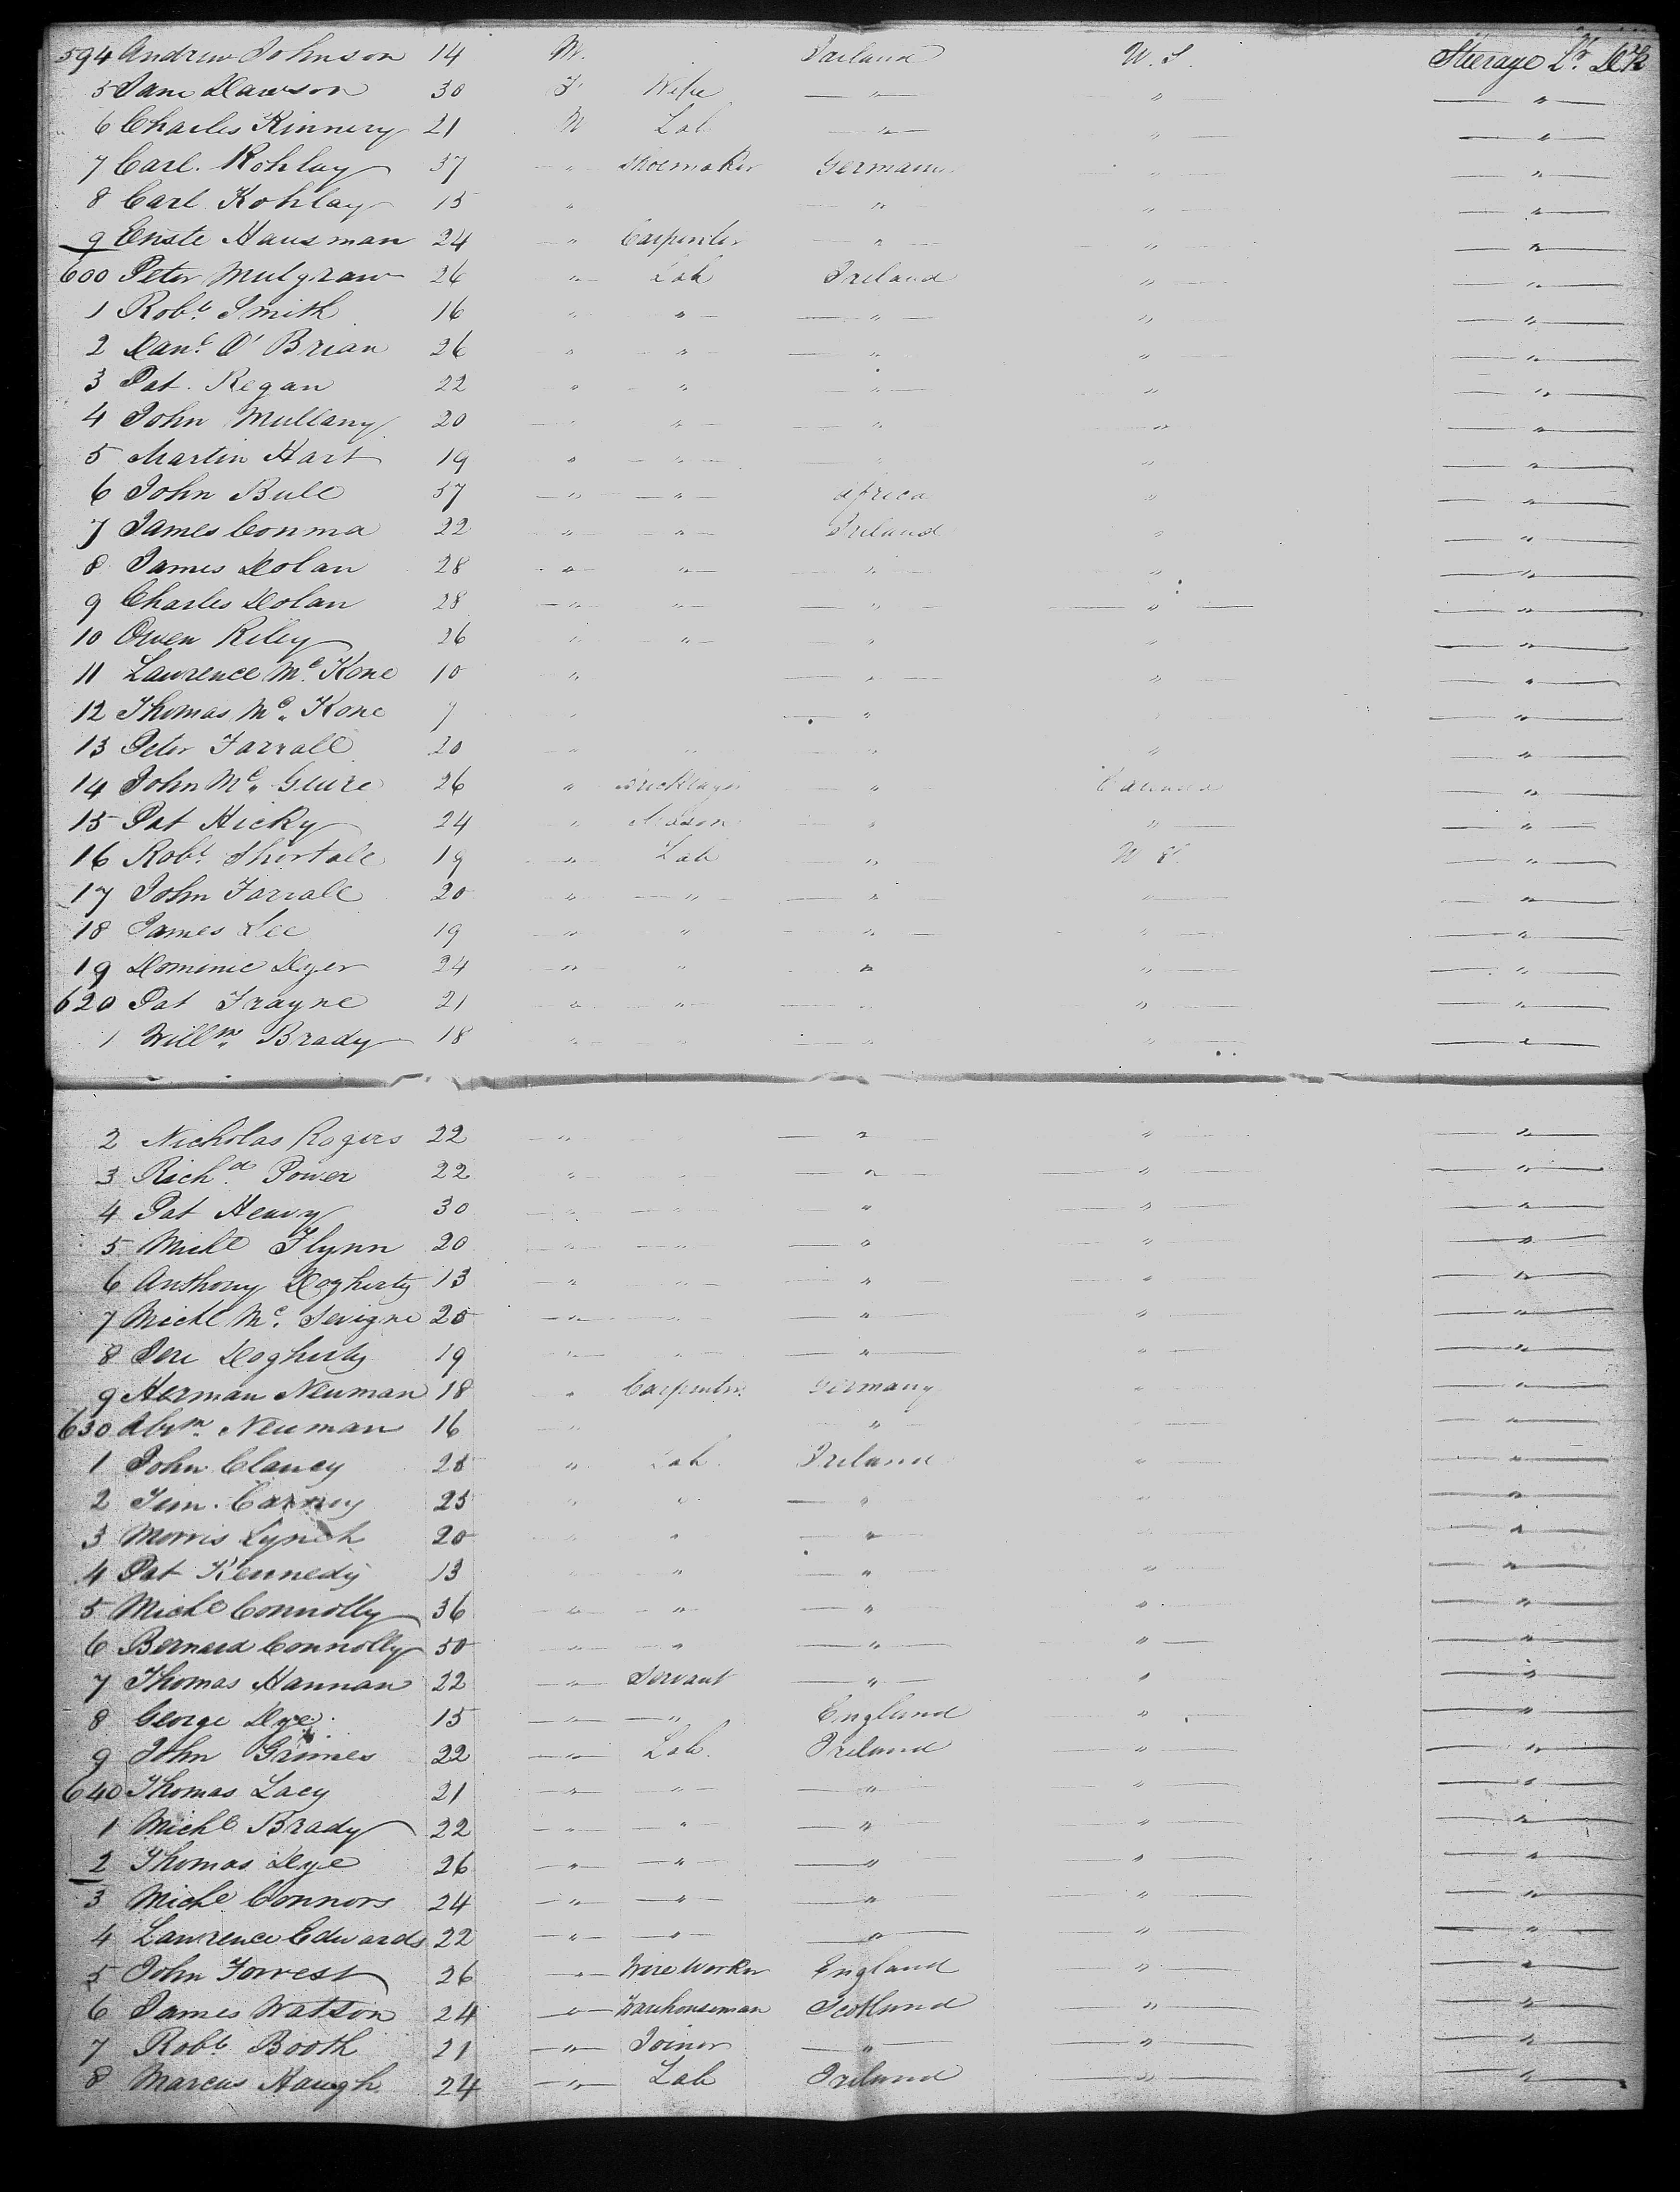 594 Andrew Johnson 14 M. Ireland U.S. Steerage Lr. Deck
5 Jane Dawson 30 F Wife " " "
6 Charles Kinnery 21 M Lab " " "
7 Carl. Kohlay 37 " Shoemaker Germany " "
8 Carl Kohlay 15 " " " "
9 Enste Hausman 24 " Carpenter " " "
600 Peter Mulgraw 26 " Lab Ireland " "
1 Robt. Smith 16 " " " " "
2 Danl. O'Brian 26 " " " " "
3 Pat. Regan 22 " " " " "
4 John Mullany 20 " " " " "
5 Martin Hart 19 " " " " "
6 John Bull 57 " " Africa " "
7 James Conma 22 " " Ireland " "
8 James Dolan 28 " " " " "
9 Charles Dolan 28 " " " " "
10 Owen Riley 26 " " " " "
11 Lawrence Mc. Kone 10 " " " "
12 Thomas Mc. Kone 7 " " "
13 Peter Farrall 20 " " " " "
14 John Mc. Guire 26 " Bricklayer " Canada "
15 Pat Hicky 24 " Mason " " "
16 Robt. Shortall 19 " Lab " U S. "
17 John Farrall 20 " " " " "
18 James Lee 19 " " " " "
19 Dominic Dyer 24 " " " " "
620 Pat Frayne 21 " " " " "
1 Willm. Brady 18 " " " " "
2 Nicholas Rogers 22 " " " "
3 Richd. Power 22 " " " "
4 Pat Heavy 30 " " " " "
5 Michl Flynn 20 " " " " "
6 Anthony Dogherty 13 " " " " "
7 Michl Mc. Sevigne 20 " " " " "
8 Jere Dogherty 19 " " " " "
9 Herman Neuman 18 " Carpenter Germany " "
630 Abrm. Neuman 16 " " " "
1 John Clancy 28 " Lab. Ireland " "
2 Tim. Carney 25 " " " " "
3 Morris Lynch 20 " " " "
4 Pat Kennedy 13 " " " " "
5 Michl Connolly 36 " " " " "
6 Bernard Connolly 50 " " " " "
7 Thomas Hannan 22 " Servant " " "
8 George Dye 15 " " England " "
9 John Grimes 22 " Lab. Ireland " "
640 Thomas Lacy 21 " " " " "
1 Michl Brady 22 " " " " "
2 Thomas Dye 26 " " " " "
3 Michl Connors 24 " " " " "
4 Lawrence Edwards 22 " " " " "
5 John Forrest 26 " Wire Worker England " "
6 James Watson 24 " Warehouseman Scotland " "
7 Robt Booth 21 " Joiner " " "
8 Marcus Haugh 24 " Lab Ireland " "